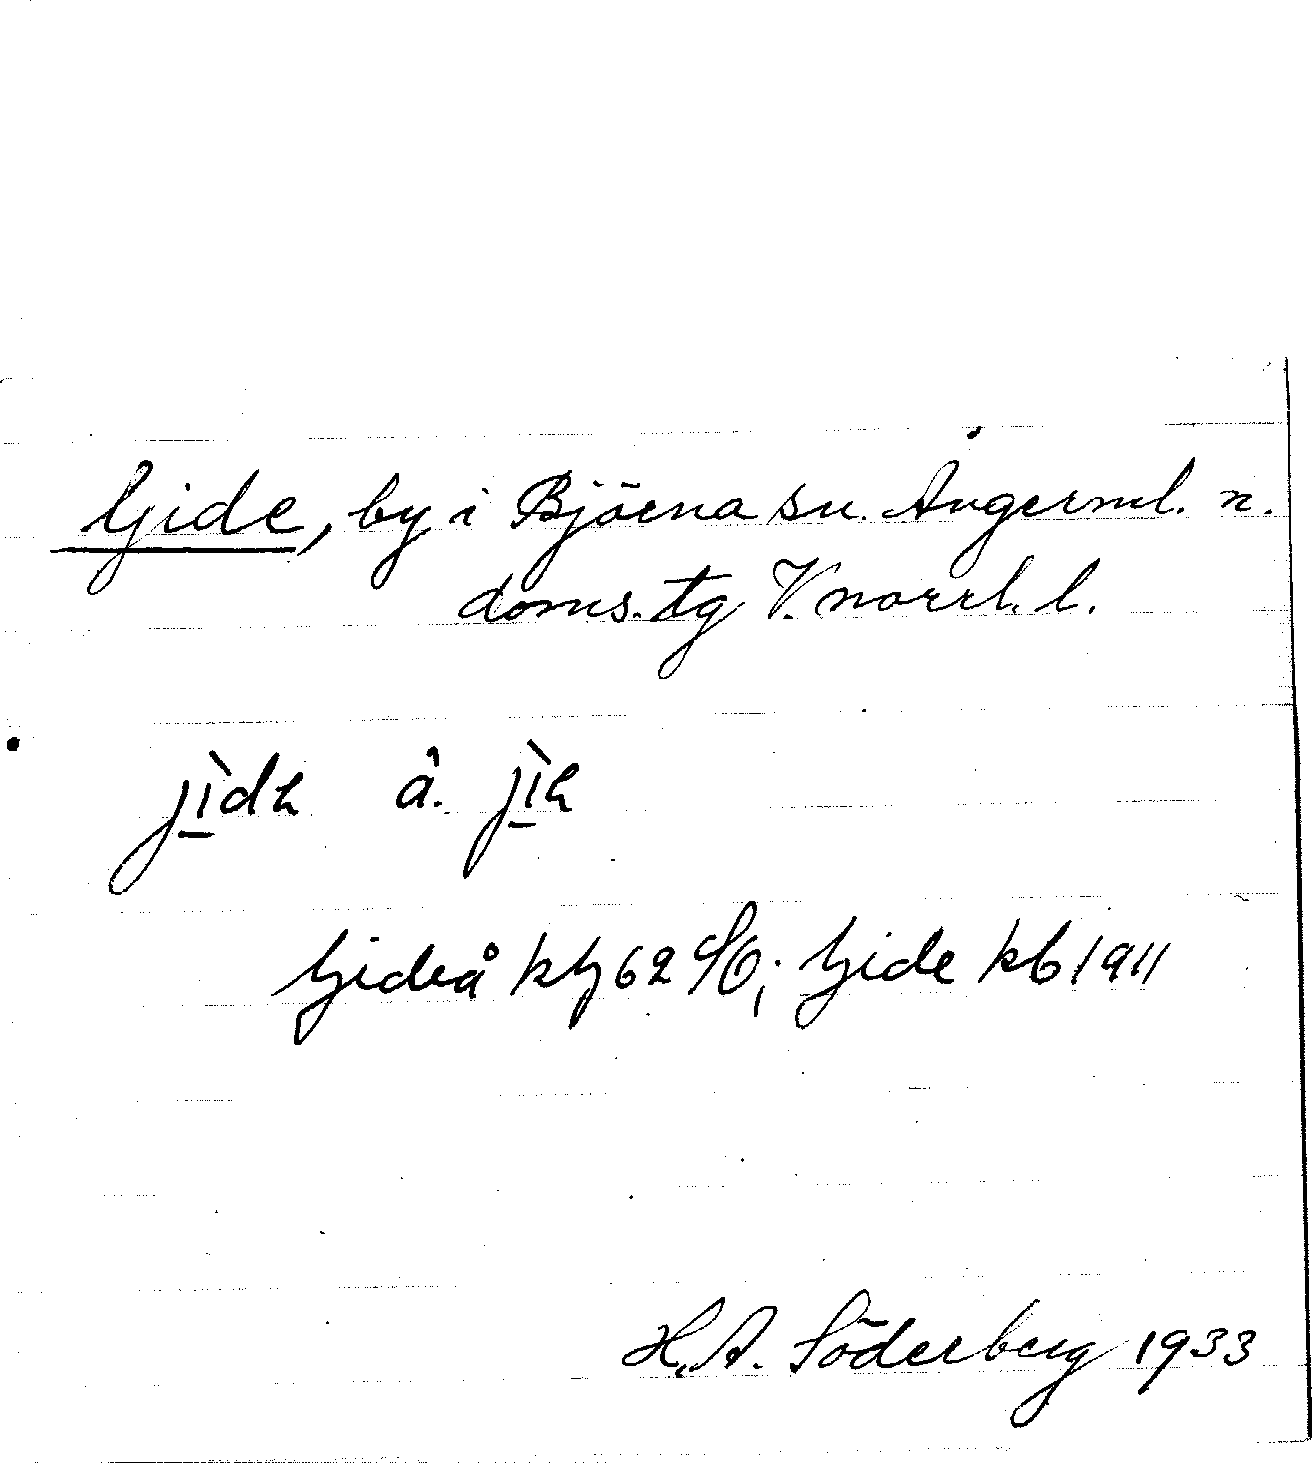 Gide, by i Björna sn. Ångerml. n.
doms. tg V. norrl. l.
jìdh å. jìh
Gideå 62 SO; Gide kb 1911
H. A. Söderberg 1933